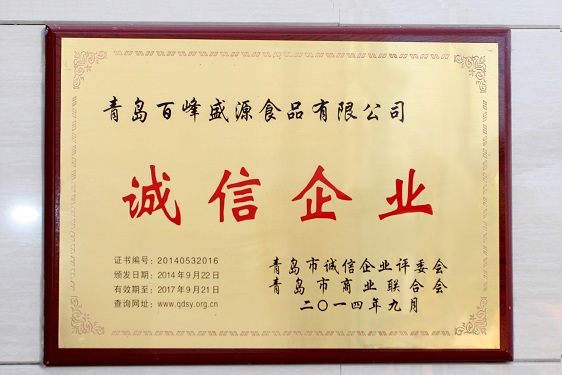 青岛百峰盛源食品有限公司
诚信企业
证书编号：20140532016
颁发日期：2014年9月22日
有效期至：2017年9月21日
查询网址：www.qdsy.org.cn
青岛市诚信企业评委会
青岛市商业联合会
二〇一四年九月